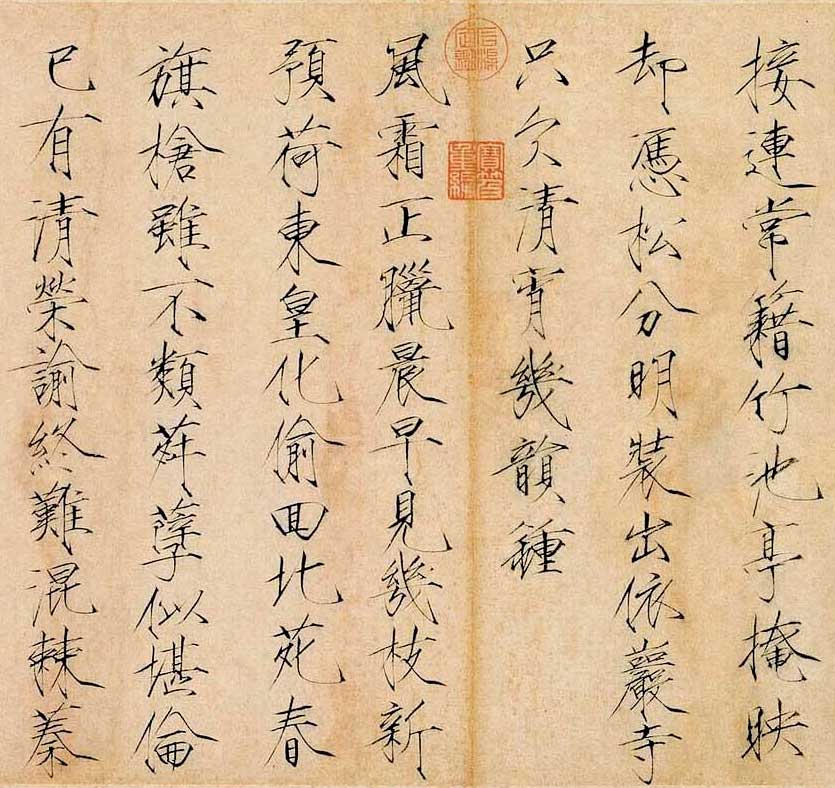 接連常籍竹池亭掩映
却憑松分明裝出依巖寺
只欠清宵幾韻鍾
風霜正臘晨早見幾枝新
預荷東皇化偷囬北苑春
旗槍雖不類荈孽似堪倫
已有清榮諭終難混棘蓁